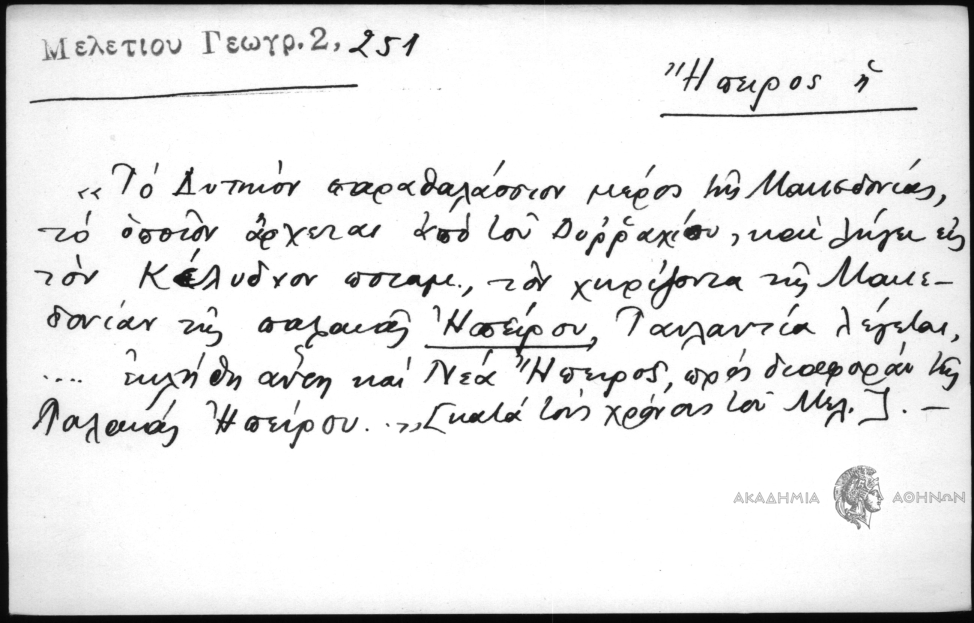 Μελετίου Γεωγρ. 2, 251
Ἤπειρος ἡ
«Τό Δυτικόν παραθαλάσσιον μέρος τῆς Μακεδονίας,
τό ὁποῖον ἄρχεται ἀπό τοῦ Δυρῥαχίου, καί λήγει εἰς
τόν Κέλυδνον ποταμ., τόν χωρίζοντα τῆς Μακε-
δονίαν τῆς παλαιᾶς Ἠπείρου, Ταυλαντία λέγεται,
.... ἐκλήθη αὕτη καί Νέα Ἤπειρος, πρός διαφοράν τῆς
Παλαιᾶς Ἠπείρου...» [κατά τούς χρόνους τοῦ Μελ.]. –
ΑΚΑΔΗΜΙΑ ΑΘΗΝΩΝ